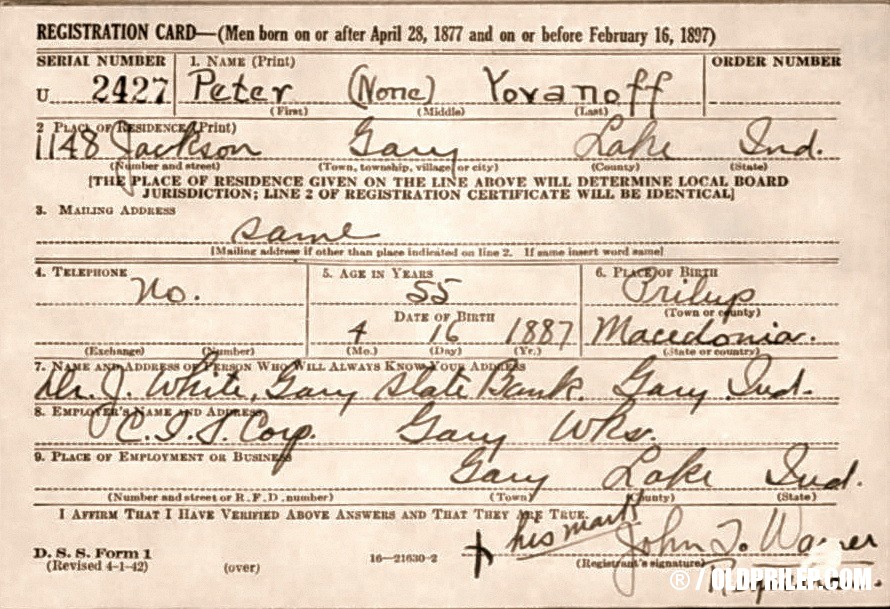 REGISTRATION CARD—(Men born on or after April 28, 1877 and on or before February 16, 1897)
SERIAL NUMBER 1. NAME (Print) ORDER NUMBER
U 2427 Peter (None) Yovanoff
(First) (Middle) (Last)
2 PLACE OF RESIDENCE (Print)
1148 Jackson Gary Lake Ind.
(Number and street) (Town, township, village, or city) (County) (State)
[THE PLACE OF RESIDENCE GIVEN ON THE LINE ABOVE WILL DETERMINE LOCAL BOARD
JURISDICTION; LINE 2 OF REGISTRATION CERTIFICATE WILL BE IDENTICAL]
3. MAILING ADDRESS
same
[Mailing address if other than place indicated on line 2. If same insert word same]
4. TELEPHONE 5. AGE IN YEARS 6. PLACE OF BIRTH
No. 55 Prilup
DATE OF BIRTH (Town or county)
4 16 1887 Macedonia.
(Exchange) (Number) (Mo.) (Day) (Yr.) (State or country)
7. NAME AND ADDRESS OF PERSON WHO WILL ALWAYS KNOW YOUR ADDRESS
J. White, Gary State Bank. Gary Ind.
8. EMPLOYER'S NAME AND ADDRESS
Corp. Gary Wks.
9. PLACE OF EMPLOYMENT OR BUSINESS
Gary Lake Ind.
(Number and street or R. F. D. number) (Town) (County) (State)
I AFFIRM THAT I HAVE VERIFIED ABOVE ANSWERS AND THAT THEY ARE TRUE.
his mark
John
D. S. S. Form 1 16—21630-2 (Registrant's signature)
(Revised 4-1-42) (over)
® / OLDPRILEP.COM